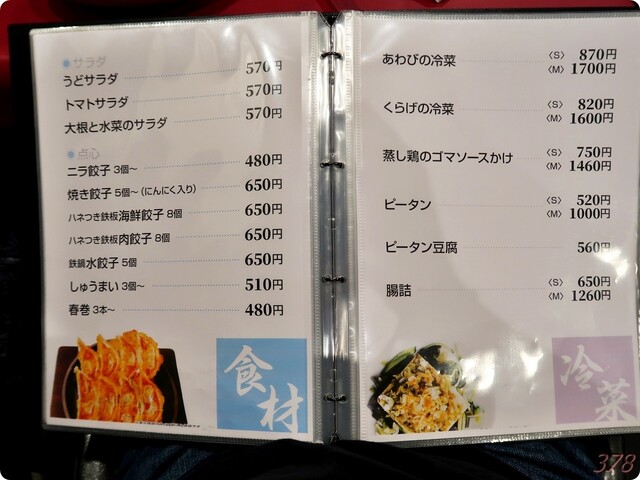 ●サラダ
うどサラダ 570円
トマトサラダ 570円
大根と水菜のサラダ 570円
●点心
ニラ餃子 3個〜 480円
焼き餃子 5個〜 (にんにく入り) 650円
ハネつき鉄板海鮮餃子 8個 650円
ハネつき鉄板肉餃子 8個 650円
鉄鍋水餃子 5個 650円
しゅうまい 3個〜 510円
春巻 3本〜 480円
食材
あわびの冷菜 〈S〉 870円
〈M〉 1700円
くらげの冷菜 〈S〉 820円
〈M〉 1600円
蒸し鶏のゴマソースかけ 〈S〉 750円
〈M〉 1460円
ピータン 〈S〉 520円
〈M〉 1000円
ピータン豆腐 560円
腸詰 〈S〉 650円
〈M〉 1260円
冷菜
378